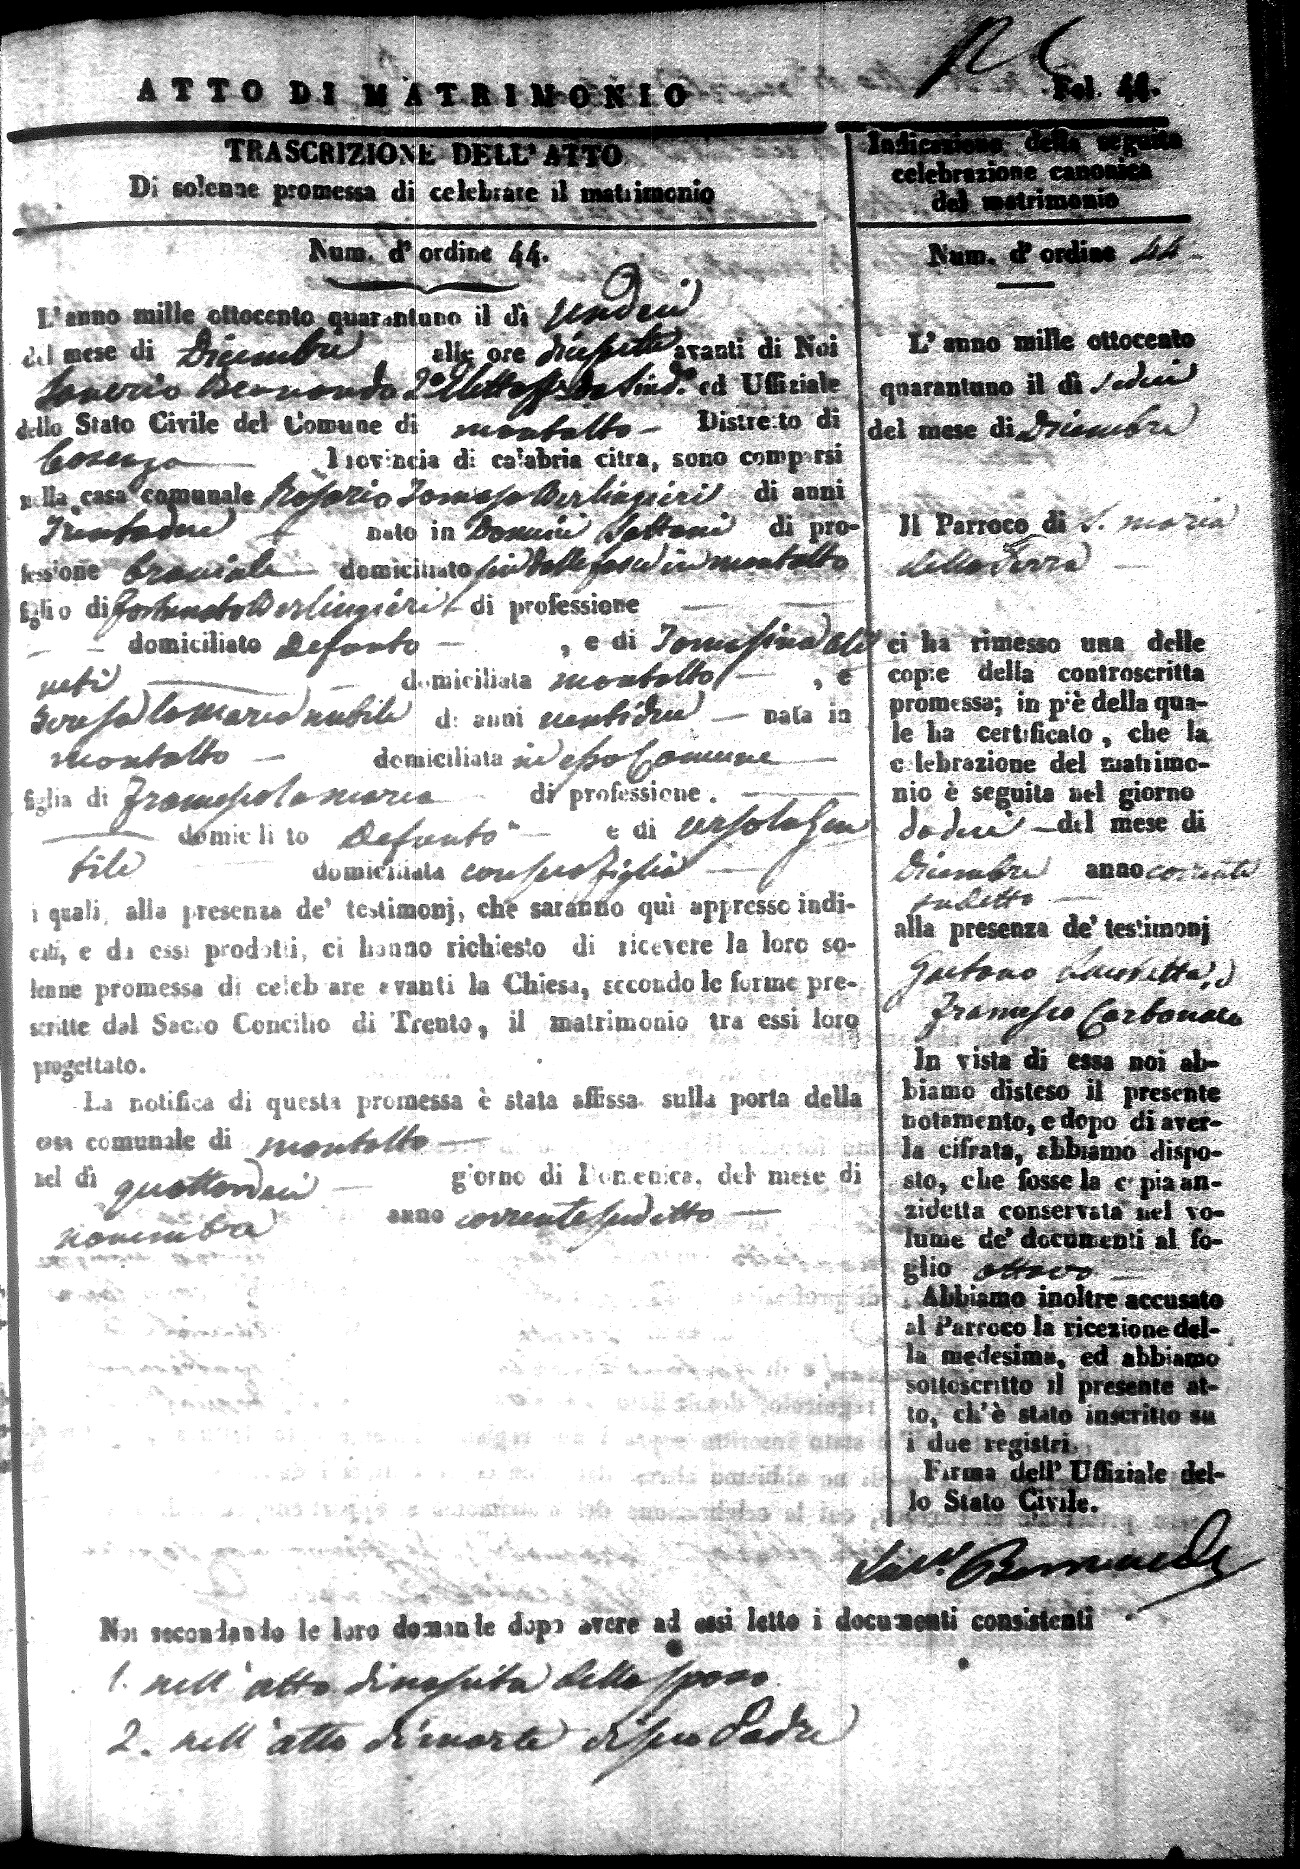 ATTO DI MATRIMONIO
Fol. 44.
TRASCRIZIONE DELL' ATTO
Di solenne promessa di celebrare il matrimonio
Num. d' ordine 44.
L' anno mille ottocento quarantuno il dì undeci
del mese di Dicembre alle ore diciesette avanti di Noi
Saverio Bernardo 2° Eletto ff. da Sind.° ed Uffiziale
dello Stato Civile del Comune di montalto Distretto di
Cosenza Provincia di calabria citra, sono comparsi
nella casa comunale Rosario Tomaso Berlingieri di anni
Trentadue nato in di pro-
fessione Braciale domiciliato sin dalle fasce in montalto
figlio di Fortunato Berlingieri di professione
domiciliato Defunto , e di Tomasina
domiciliata montalto , e
Teresa la maria nubile di anni ventidue nata in
montalto domiciliata in esso Comune
figlia di Francesco la maria di professione .
domicilito Defunto e di Ursola Gen
tile domiciliata con sua figlia
i quali, alla presenza de' testimonj, che saranno quì appresso indi-
cati, e da essi prodotti, ci hanno richiesto di ricevere la loro so-
lenne promessa di celebrare avanti la Chiesa, secondo le forme pre-
scritte dal Sacro Concilio di Trento, il matrimonio tra essi loro
progettato.
La notifica di questa promessa è stata affissa sulla porta della
casa comunale di montalto
nel dì quattordeci giorno di Domenica, del mese di
novembre anno corrente sudetto
Indicazione della seguita
celebrazione canonica
del matrimonio
Num. d' ordine 44
L' anno mille ottocento
quarantuno il dì sedeci
del mese di Dicembre
Il Parroco di S. maria
della Serra
ci ha rimesso una delle
copie della controscritta
promessa; in piè della qua-
le ha certificato, che la
celebrazione del matrimo-
nio è seguita nel giorno
dodeci del mese di
Dicembre anno corrente
sudetto
alla presenza de' testimonj
Gaetano
Francesco Carbonaro
In vista di essa noi ab-
biamo disteso il presente
notamento, e dopo di aver-
la cifrata, abbiamo dispo-
sto, che fosse la copia an-
zidetta conservata nel vo-
lume de' documenti al fo-
glio ottavo
Abbiamo inoltre accusato
al Parroco la ricezione del-
la medesima, ed abbiamo
sottoscritto il presente at-
to, ch'è stato inscritto su
i due registri.
Firma dell' Uffiziale del-
lo Stato Civile.
Sav.° Bernardo
Noi secondando le loro domande dopo avere ad essi letto i documenti consistenti
1. nell' atto di nascita dello sposo
2. nell' atto di morte di suo Padre